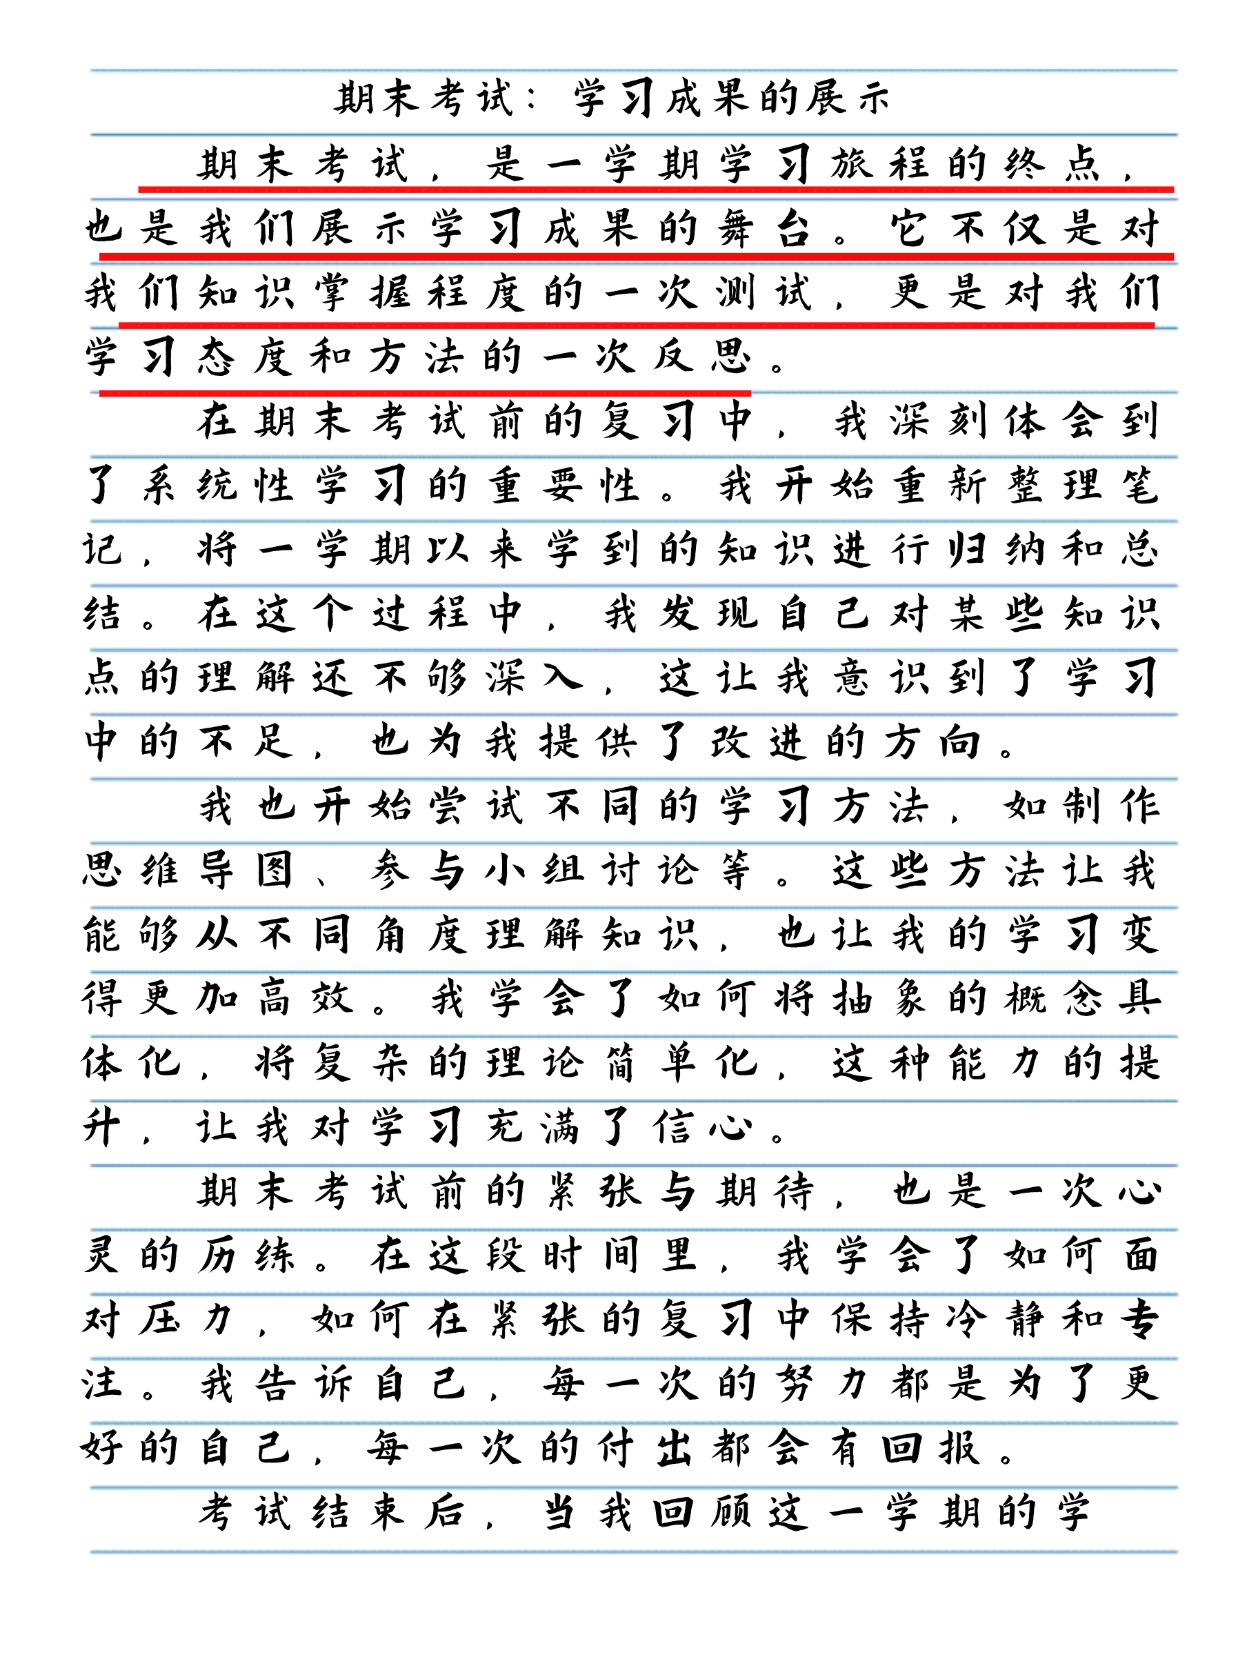 期末考试：学习成果的展示
期末考试，是一学期学习旅程的终点，
也是我们展示学习成果的舞台。它不仅是对
我们知识掌握程度的一次测试，更是对我们
学习态度和方法的一次反思。
在期末考试前的复习中，我深刻体会到
了系统性学习的重要性。我开始重新整理笔
记，将一学期以来学到的知识进行归纳和总
结。在这个过程中，我发现自己对某些知识
点的理解还不够深入，这让我意识到了学习
中的不足，也为我提供了改进的方向。
我也开始尝试不同的学习方法，如制作
思维导图、参与小组讨论等。这些方法让我
能够从不同角度理解知识，也让我的学习变
得更加高效。我学会了如何将抽象的概念具
体化，将复杂的理论简单化，这种能力的提
升，让我对学习充满了信心。
期末考试前的紧张与期待，也是一次心
灵的历练。在这段时间里，我学会了如何面
对压力，如何在紧张的复习中保持冷静和专
注。我告诉自己，每一次的努力都是为了更
好的自己，每一次的付出都会有回报。
考试结束后，当我回顾这一学期的学